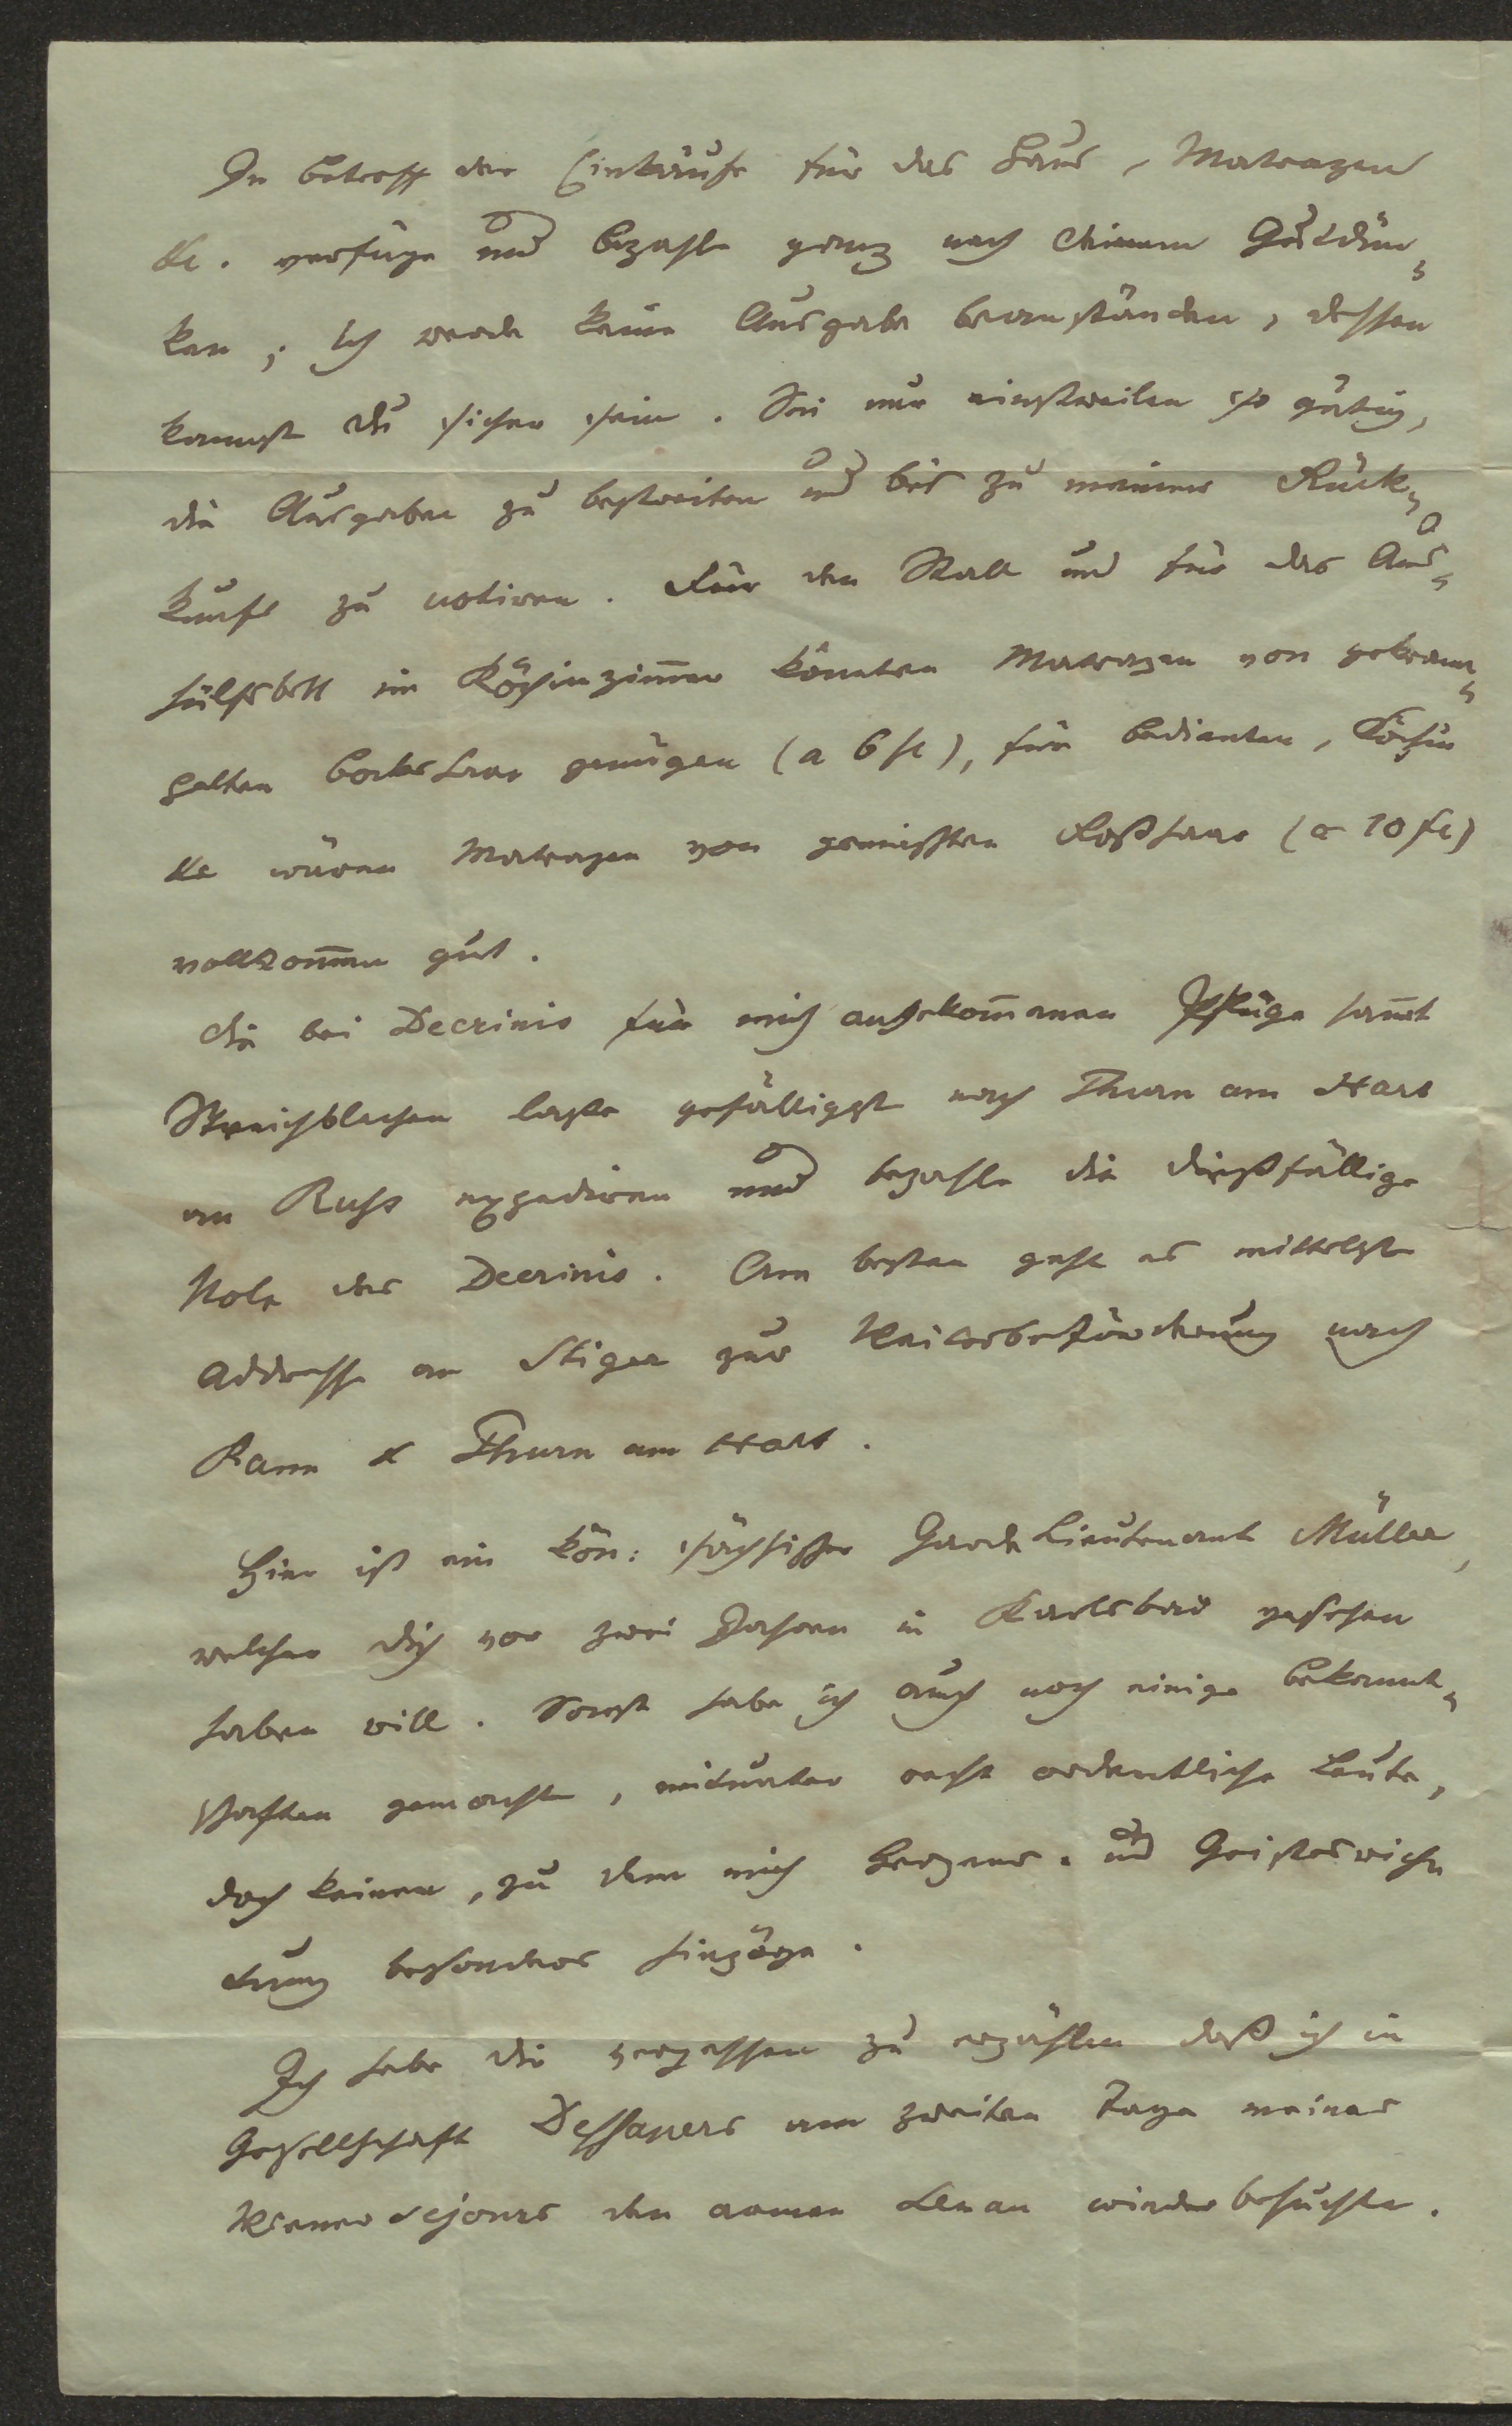 In betreff der Einkäufe für das Haus, Matrazen
&c. verfüge und bezahle ganz nach Deinem Gutdün-
ken; ich werde keine Ausgabe beanständen, dessen
kannst Du sicher sein. Sei nur einstweilen so gütig,
die Ausgaben zu bestreiten und bis zu meiner Rück-
kunft zu notiren. Für den Stall und für das Aus-
hülfsbett im Köchinzimmer könnten Matrazen von gekram-
pelten Bockshaar genügen (a 6 fl), für Bedienten, Köchin
&c wären Matrazen von gemischten Roßhaar (a 10 fl)
vollkommen gut.
Die bei Decrinis für mich angekommenen Pflüge sammt
Streichblechen lasse gefälligst nach Thurn am Hart
an Russ expediren und bezahle die dießfällige
Note des Decrinis. Am besten geht es mittelst
Addresse an Stiger zur Weiterbeförderung nach
Rann & Thurn am Hart.
Hier ist ein kön: sächsischer Garde Lieutenant Müller,
welcher Dich vor zwei Jahren in Karlsbad gesehen
haben will. Sonst habe ich auch noch einige Bekannt-
schaften gemacht, mitunter recht ordentliche Leute,
doch keinen, zu dem mich Herzens- und Geistesrich-
tung besonders hinzöge.
Ich habe Dir vergessen zu erzählen daß ich in
Gesellschaft Dessauers am zweiten Tage meines
Wiener Sejours den armen Lenau wieder besuchte.